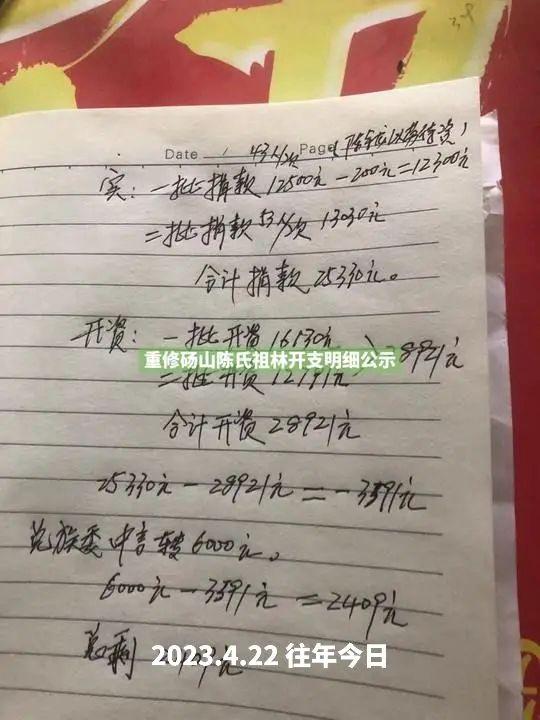 Date 43人/次 Page
实：一批捐款12500元-200元=12300元
二批捐款53人/次 13030元
合计捐款25330元。
开资：一批开资16130元
28921元
重修砀山陈氏祖林开支明细公示
二批开资12791元
合计开资28921元
25330元-28921元=-3591元
族委 转6000元。
6000元-3591元=2409元
总剩
2023.4.22 往年今日